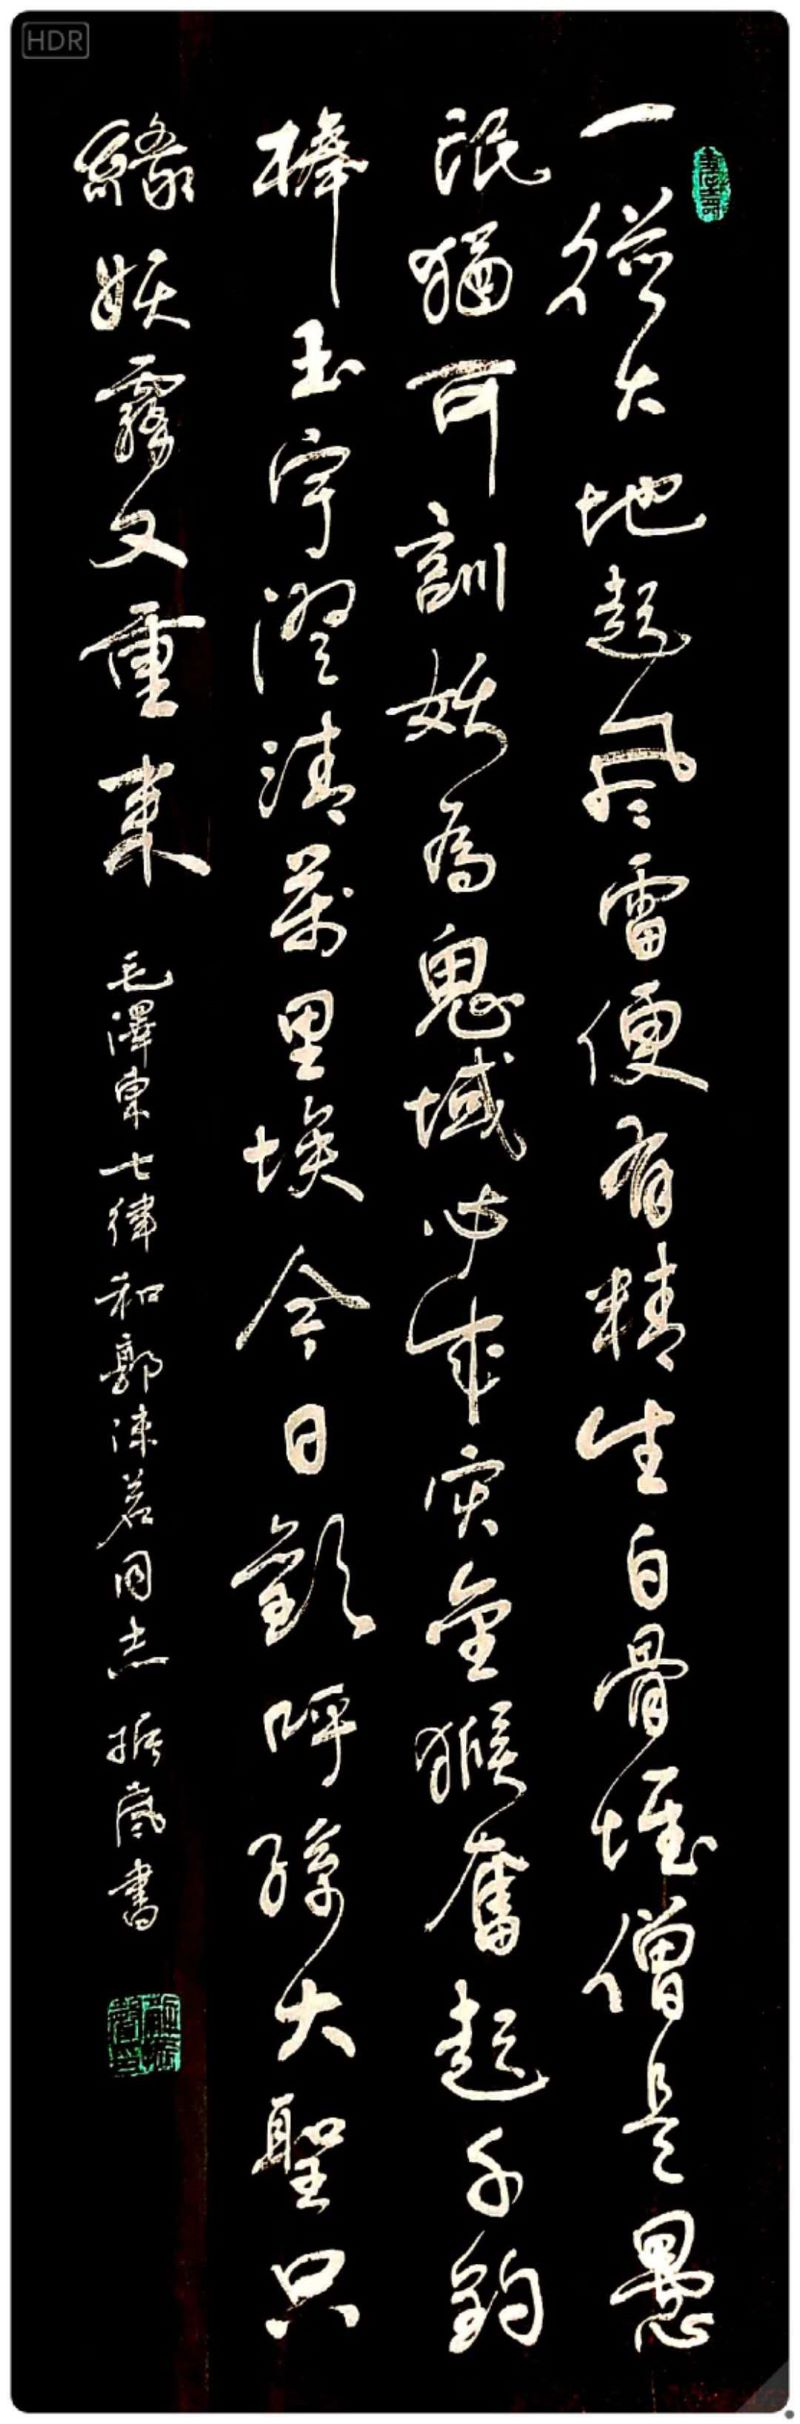 HDR
一從大地起風雷便有精生白骨堆僧是愚
氓猶可訓妖為鬼域必成災金猴奮起千鈞
棒玉宇澄清萬里埃今日歡呼孫大聖只
緣妖霧又重來
毛澤東七律和郭沫若同志振嵐書